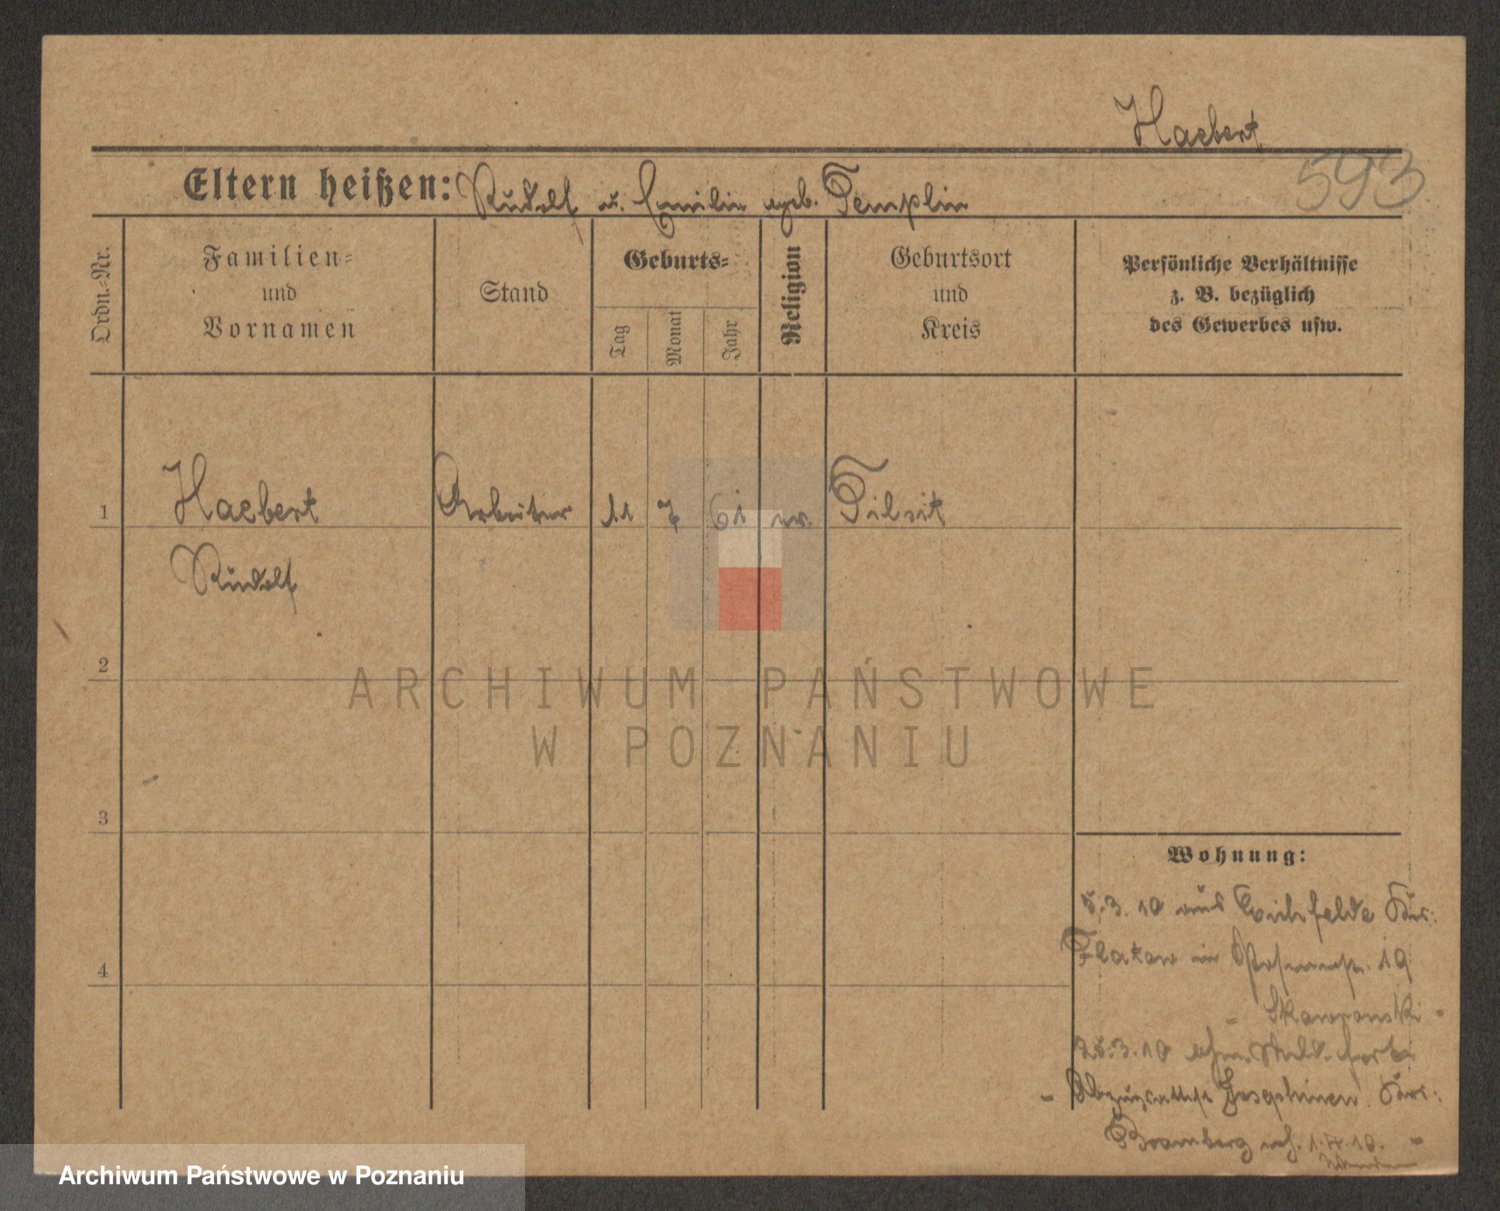 Haebert
593
Eltern heißen: Rudolf u. Emilie geb. Templin
Ordn.-Nr.
Familien=
und
Vornamen
Stand
Geburts=
Tag
Monat
Jahr
Religion
Geburtsort
und
Kreis
Persönliche Verhältnisse
z. B. bezüglich
des Gewerbes usw.
1 Haebert Arbeiter 11 7 61 ev. Tilsit
Rudolf
2
ARCHIWUM PAŃSTWOWE
W POZNANIU
3
Wohnung:
5.3.10 aus Eichfelde Krs.
Flatow in 19
- Skawronski -
25.3.10 ohne Meld. fort
- Abzugsattest Josephinen Krs.
Bromberg 1.4.10. -
4
Archiwum Państwowe w Poznaniu